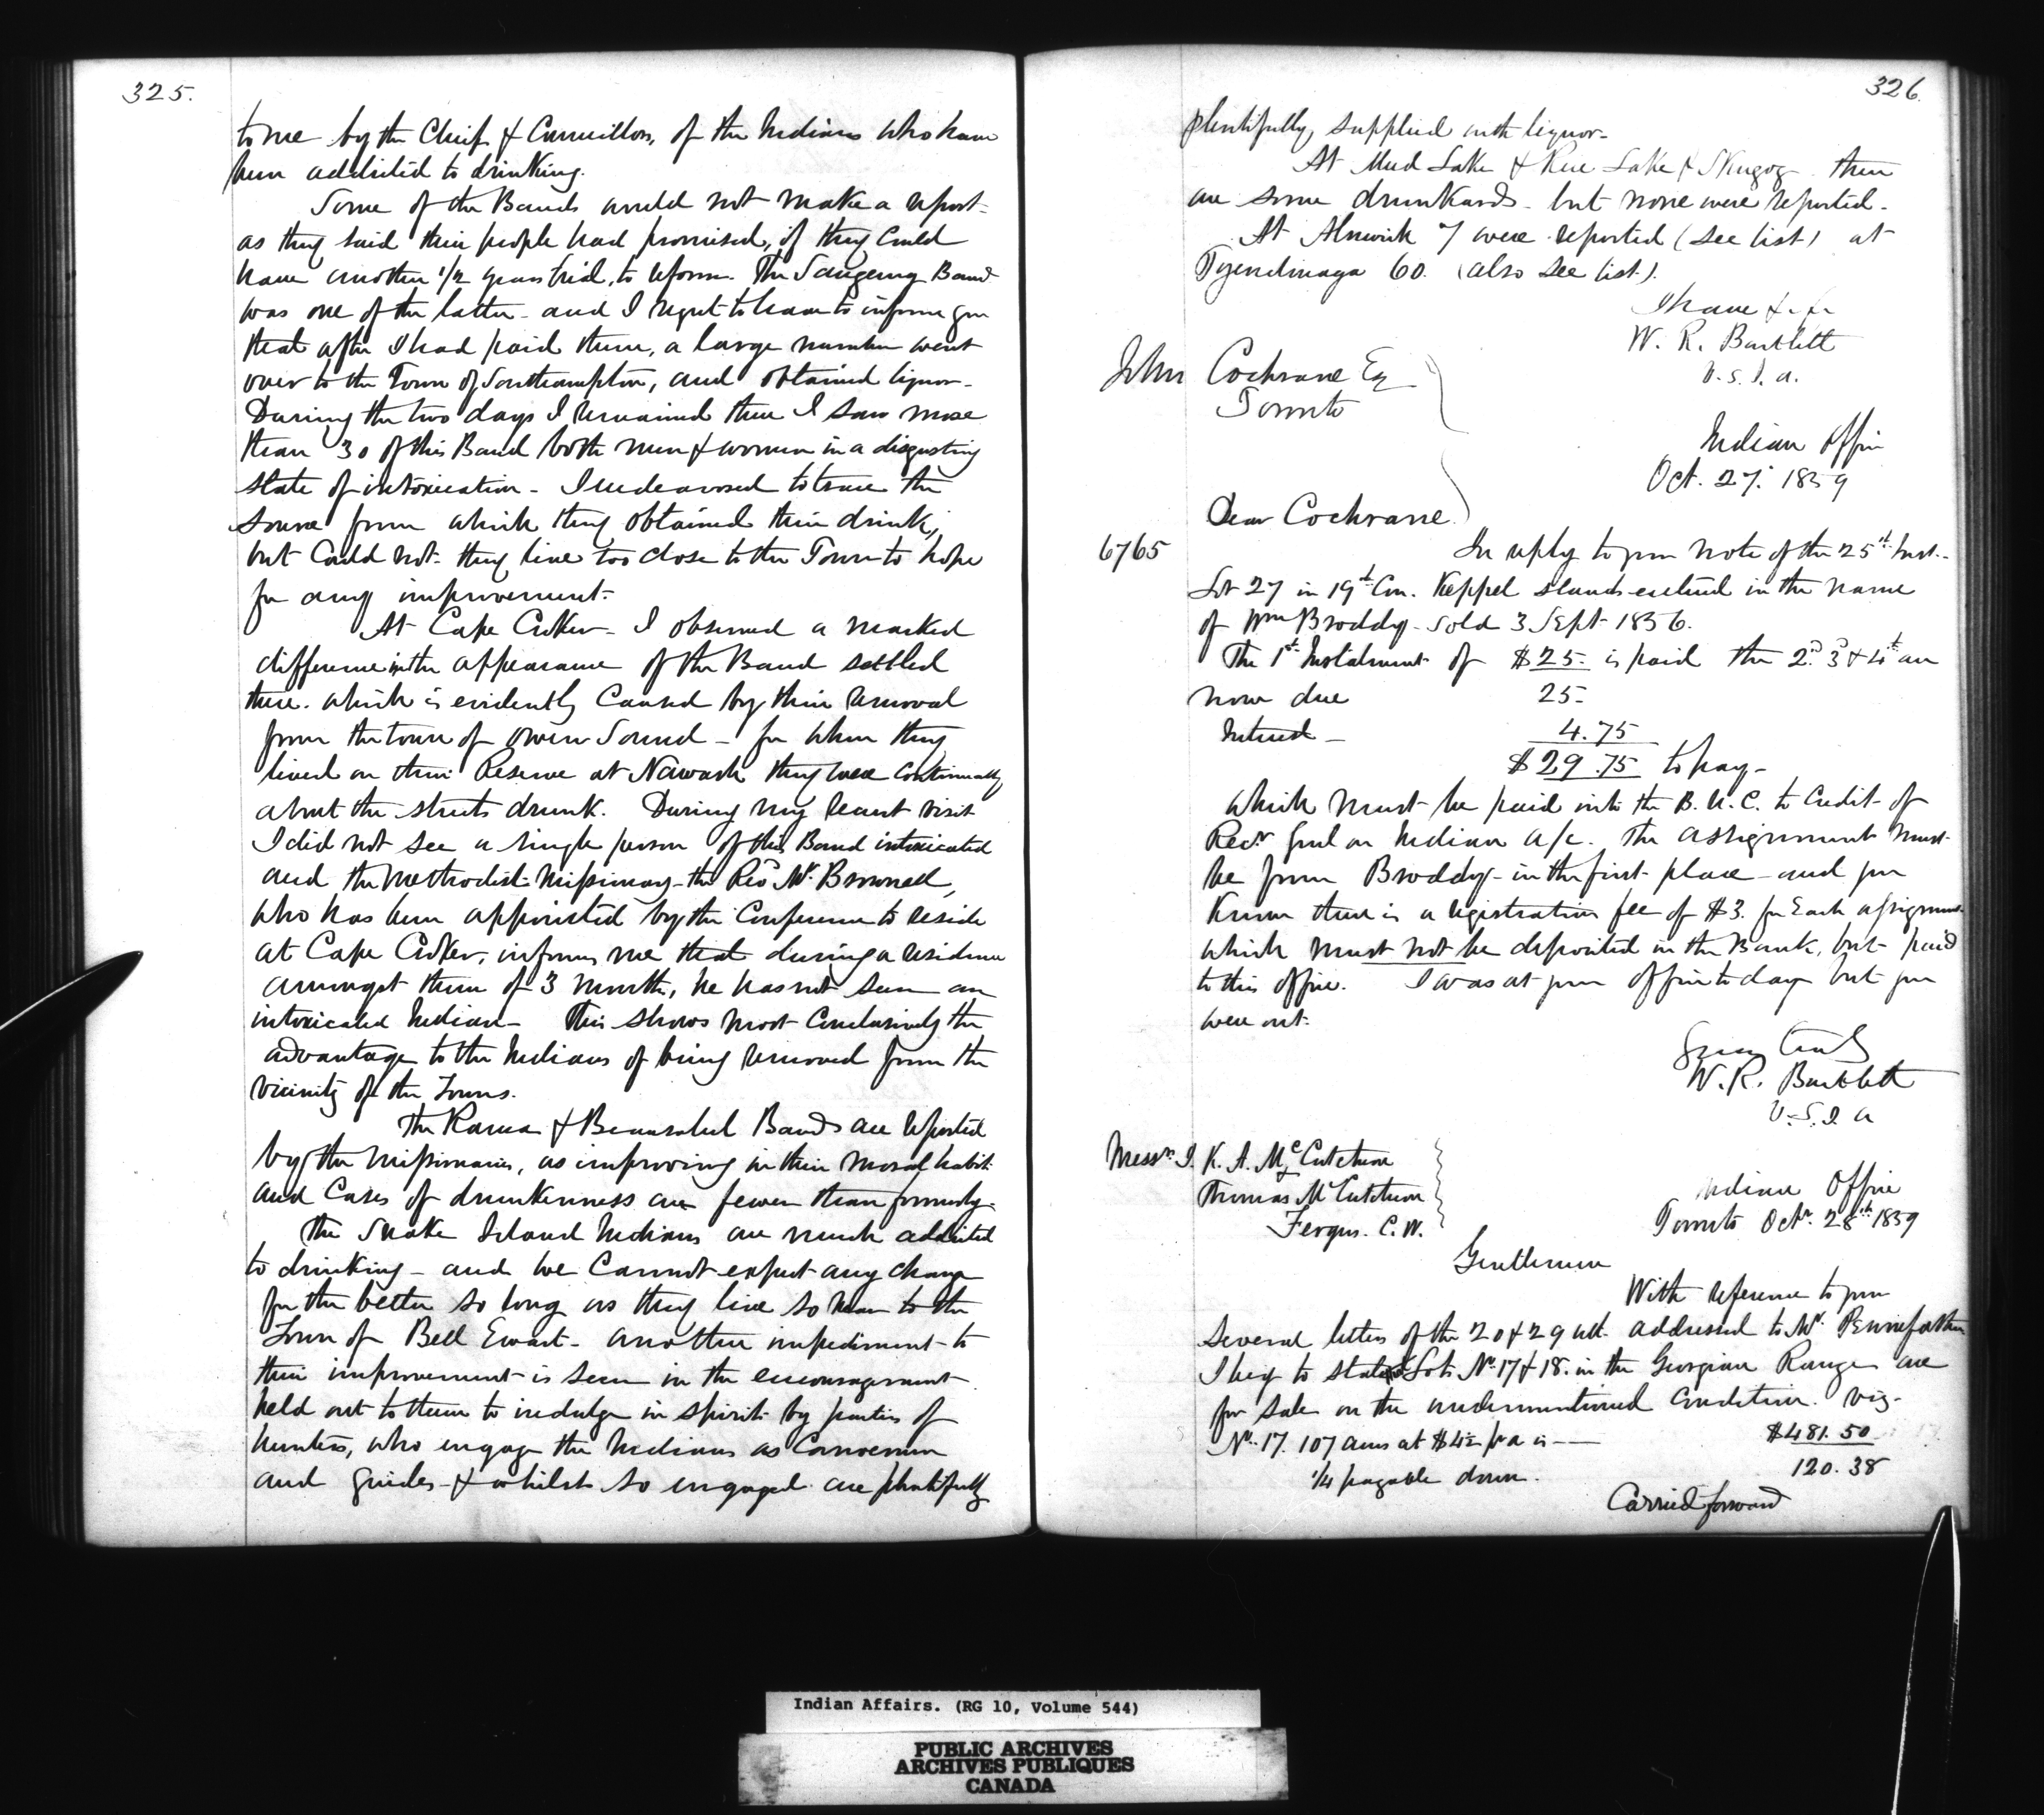 325.
to me by the Chiefs & Councillors, of the Indians who have
been addicted to drinking.
Some of the Bands would not make a report
as they said their people had promised, if they could
have another 1/2 years trial, to reform. The Saugeeng Band
was one of the latter - and I regret to have to inform you
that after I had paid them, a large number went
over to the Town of Southampton, and obtained liquor.
During the two days I remained there I saw more
than 30 of this Band both men & women in a disgusting
state of intoxication - I endeavored to trace the
source from which they obtained their drink,
but could not. they live too close to the Town to hope
for any improvement.
At Cape Croker - I observed a marked
difference in the appearance of the Band settled
there. which is evidently caused by their removal
from the town of Owen Sound - for when they
lived on their Reserve at Nawash they were continually
about the streets drunk. During my recent visit
I did not see a single person of this Band intoxicated
and the Methodist Missionary - the Revd Mr. Brownell,
who has been appointed by the Conference to reside
at Cape Croker, informs me that during a residence
amongst them of 3 months, he has not seen an
intoxicated Indian - This shows most conclusively the
advantage to the Indians of being removed from the
vicinity of the Towns.
The Rama & Beausoleil Bands are reported
by the Missionaries, as improving in their moral habits
and cases of drunkenness are fewer than formerly.
The Snake Island Indians are much addicted
to drinking - and we cannot expect any change
for the better so long as they live so near to the
Town of Bell Ewart - another impediment to
their improvement is seen in the encouragement
held out to them to indulge in spirits by parties of
hunters, who engage the Indians as Canoemen
and guides - & whilst so engaged are plentifully
326.
plentifully supplied with liquor -
At Mud Lake & Rice Lake & Skugog there
are some drunkards - but none were reported -
At Alnwick 7 were reported (see list) at
Tyendinaga 60. (also see list).
I have &c &c
W. R. Bartlett
V. S. I. a.
John Cochrane Esq
Toronto
Indian Office
Oct. 27. 1859
Dear Cochrane
6765
In reply to your note of the 25th Inst.
Lot 27 in 19th Con. Keppel stands entered in the name
of Wm Broddy - Sold 3 Sept 1856.
The 1st Instalment of $25 - is paid the 2nd 3d & 4th are
now due 25 -
Interest - 4.75
$29.75 to pay -
which must be paid into the B. U. C. to Credit of
Recr. Genl on Indian a/c. The assignment must
be from Broddy - in the first place - and you
know there is a registration fee of $3. for each assignment
which must not be deposited in the Bank, but paid
to this office. I was at your office to day but you
were out.
Yours truly
W. R. Bartlett
V. S. I. a
Messrs. I. K. A. McCutcheon
&
Thomas McCutcheon
Fergus. C. W.
Indian Office
Toronto Octr. 28th 1859
Gentlemen
With reference to your
several letters of the 20 & 29 ult. addressed to Mr. Pennefather
I beg to state Lots No. 17 & 18. in the Georgian Range are
for sale on the undermentioned Condition. viz -
No. 17. 107 acres at $4½ pr a is - $481.50
1/4 payable down. 120.38
Carried forward
Indian Affairs. (RG 10, Volume 544)
PUBLIC ARCHIVES
ARCHIVES PUBLIQUES
CANADA